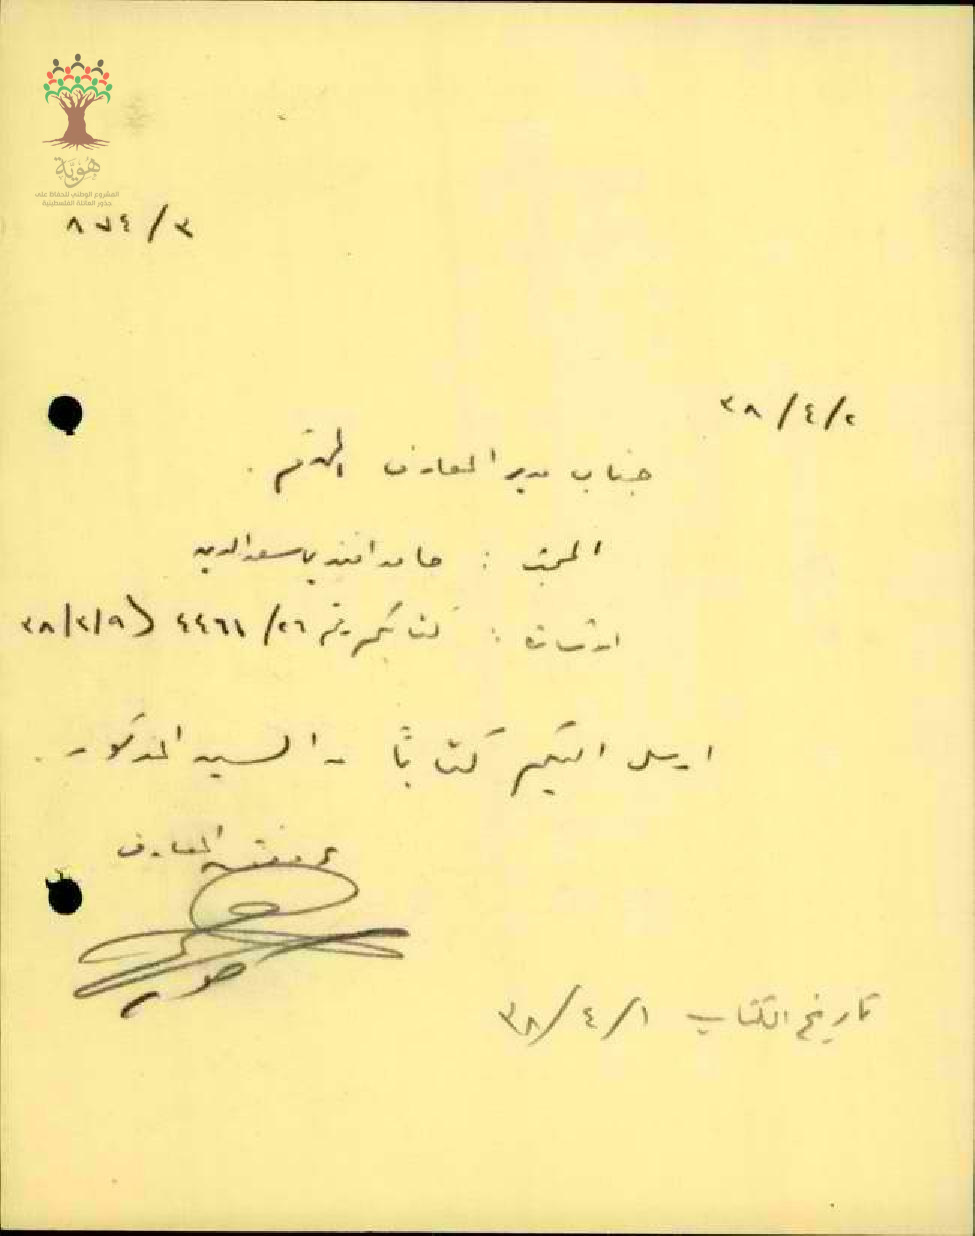 هُويَّة
المشروع الوطني للحفاظ على
جذور العائلة الفلسطينية
٣٨/٤/٢
جناب مدير المعارف المحترم .
المبحث : حامد افندي سعد الدين
اشارة : كتابكم رقم ٢٦/ ٤٤٦١ ٣٨/٣/٩
ارسل اليكم كتاباً من السيد المذكور .
مفتش المعارف
صورة
تاريخ الكتاب ٣٨/٤/١